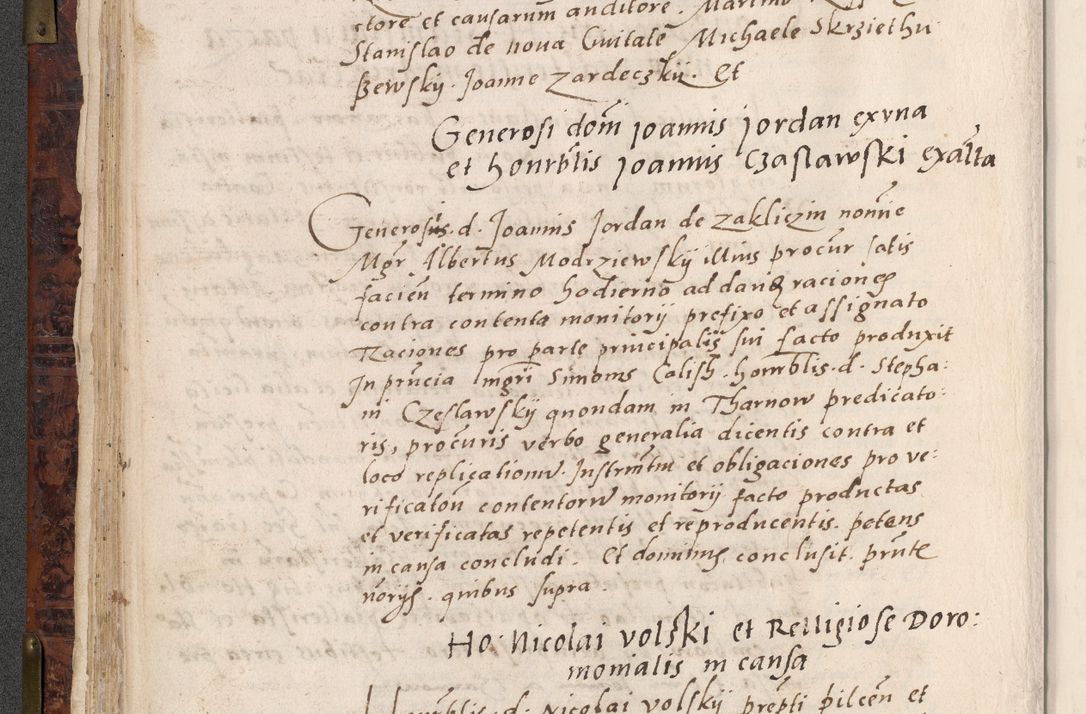 ctore et causarum auditore. Martino
Stanislao de nova Civitate Michaele Skrziethu
szewskij. Joanne Zardeczkij. Et
Generosi domi Joannis Jordan ex una
et honrblis Joannis Czaslawski ex alta
Generosus. d. Joannis Jordan de Zakliczin nomie
Mgr Albertus Modrziewskij illius procur satis
facien termino hodierno ad dandas raciones
contra contenta monitorij prefixo et assignato
Raciones pro parte principalis sui facto produxit
In pruncia mgri Simonis Calish. honrblis. d. Stepha:
ni Czeslawskij quondam in Tharnow predicato:
ris, procuris verbo generalia dicentis contra et
loco replicationum. Instrumtum et obligaciones pro ve:
rificaton contentorum monitorij facto productas
et verificatas repetentis et reproducentis. petens
in causa concludi. Et dominus conclusit. prnte
norijs. quibus supra
Ho: Nicolai Volski et Religiose Doro:
monialis in causa
Honrblis. d. Nicolai Volskij prepti pilcen et